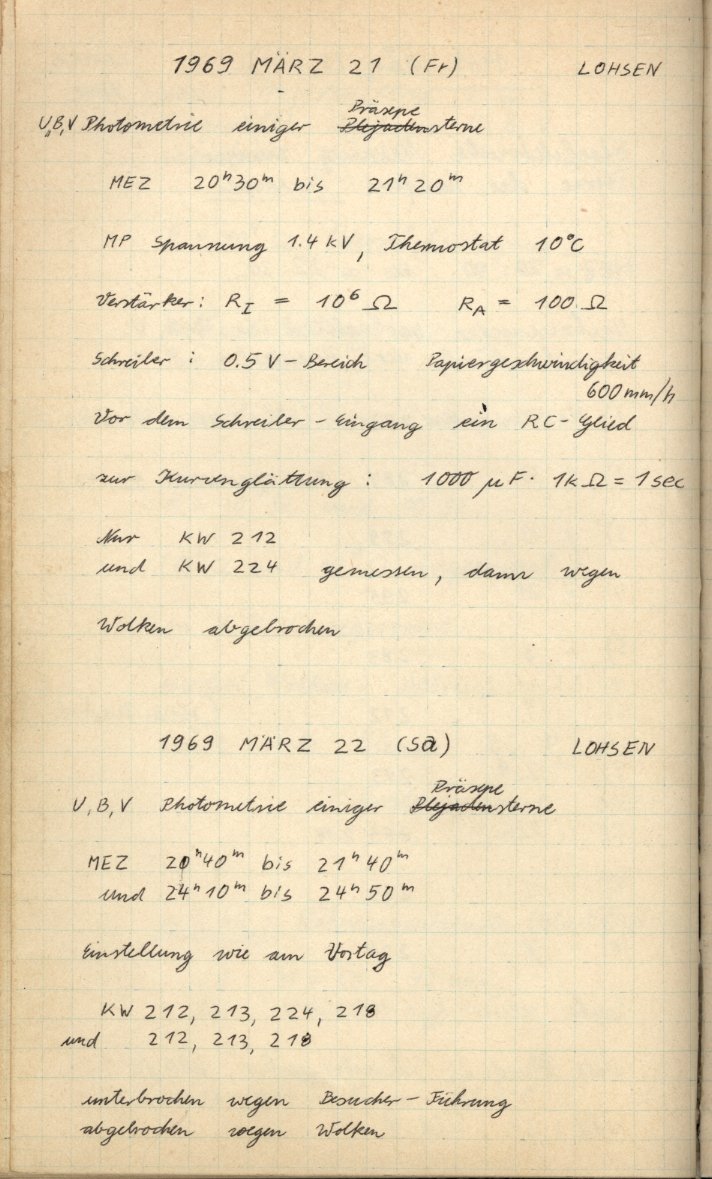 1969 MÄRZ 21 (Fr) LOHSEN
Präsepe
U,B,V Photometrie einiger Plejadensterne
MEZ 20h30m bis 21h20m
MP Spannung 1.4 kV, Thermostat 10°C
Verstärker: RI = 10⁶ Ω RA = 100 Ω
Schreiber : 0.5 V-Bereich Papiergeschwindigkeit
600 mm/h
Vor dem Schreiber-Eingang ein RC-Glied
zur Kurvenglättung : 1000 µF · 1kΩ = 1 sec
Nur KW 212
und KW 224 gemessen, dann wegen
Wolken abgebrochen
1969 MÄRZ 22 (Sa) LOHSEN
Präsepe
U,B,V Photometrie einiger Plejadensterne
MEZ 20h40m bis 21h40m
und 24h10m bis 24h50m
Einstellung wie am Vortag
KW 212, 213, 224, 218
und 212, 213, 218
unterbrochen wegen Besucher-Führung
abgebrochen wegen Wolken